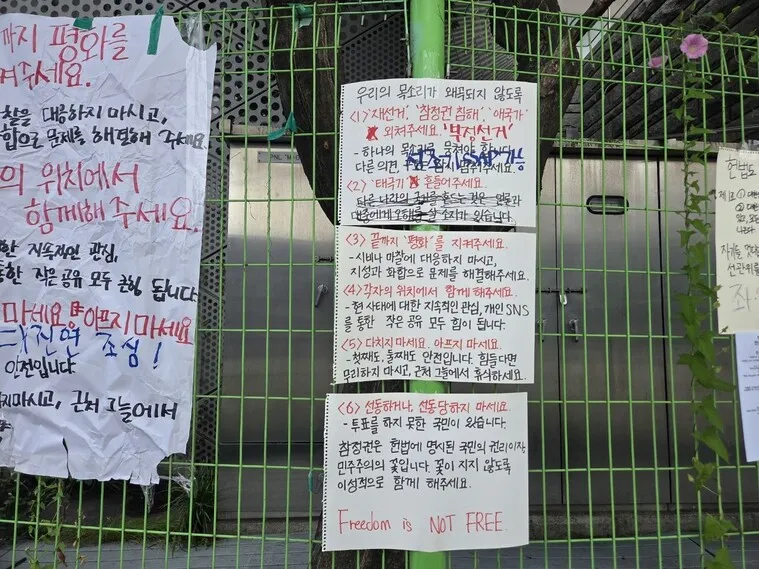 까지 평화를
켜주세요.
찰을 대응하지 마시고,
합으로 문제를 해결해 주세요.
의 위치에서
함께해 주세요.
한 지속적인 관심,
통한 작은 공유 모두 큰힘 됩니다
마세요 아프지 마세요
=> 진면 조심!
안전입니다
하지마시고, 근처 그늘에서
우리의 목소리가 왜곡되지 않도록
<1> '재선거', '참정권 침해', '애국가'
외쳐주세요. '부정선거'
- 하나의 목소리로 뭉쳐야 합니다.
다른 의견,
SNAP 가능
<2> '태극기' 흔들어주세요.
다른 나라의 국기를 흔드는 것은 언론과
대중에게 오해를 살 소지가 있습니다.
<3> 끝까지 '평화'를 지켜주세요.
- 시비나 마찰에 대응하지 마시고,
지성과 화합으로 문제를 해결해주세요.
<4> 각자의 위치에서 함께 해주세요.
- 현 사태에 대한 지속적인 관심, 개인 SNS
를 통한 작은 공유 모두 힘이 됩니다.
<5> 다치지 마세요. 아프지 마세요.
- 첫째도, 둘째도 안전입니다. 힘들다면
무리하지 마시고, 근처 그늘에서 휴식하세요.
<6> 선동하거나, 선동당하지 마세요.
- 투표를 하지 못한 국민이 있습니다.
참정권은 헌법에 명시된 국민의 권리이장
민주주의의 꽃입니다. 꽃이 지지 않도록
이성적으로 함께 해주세요.
Freedom is NOT FREE.
헌법도
선관위를